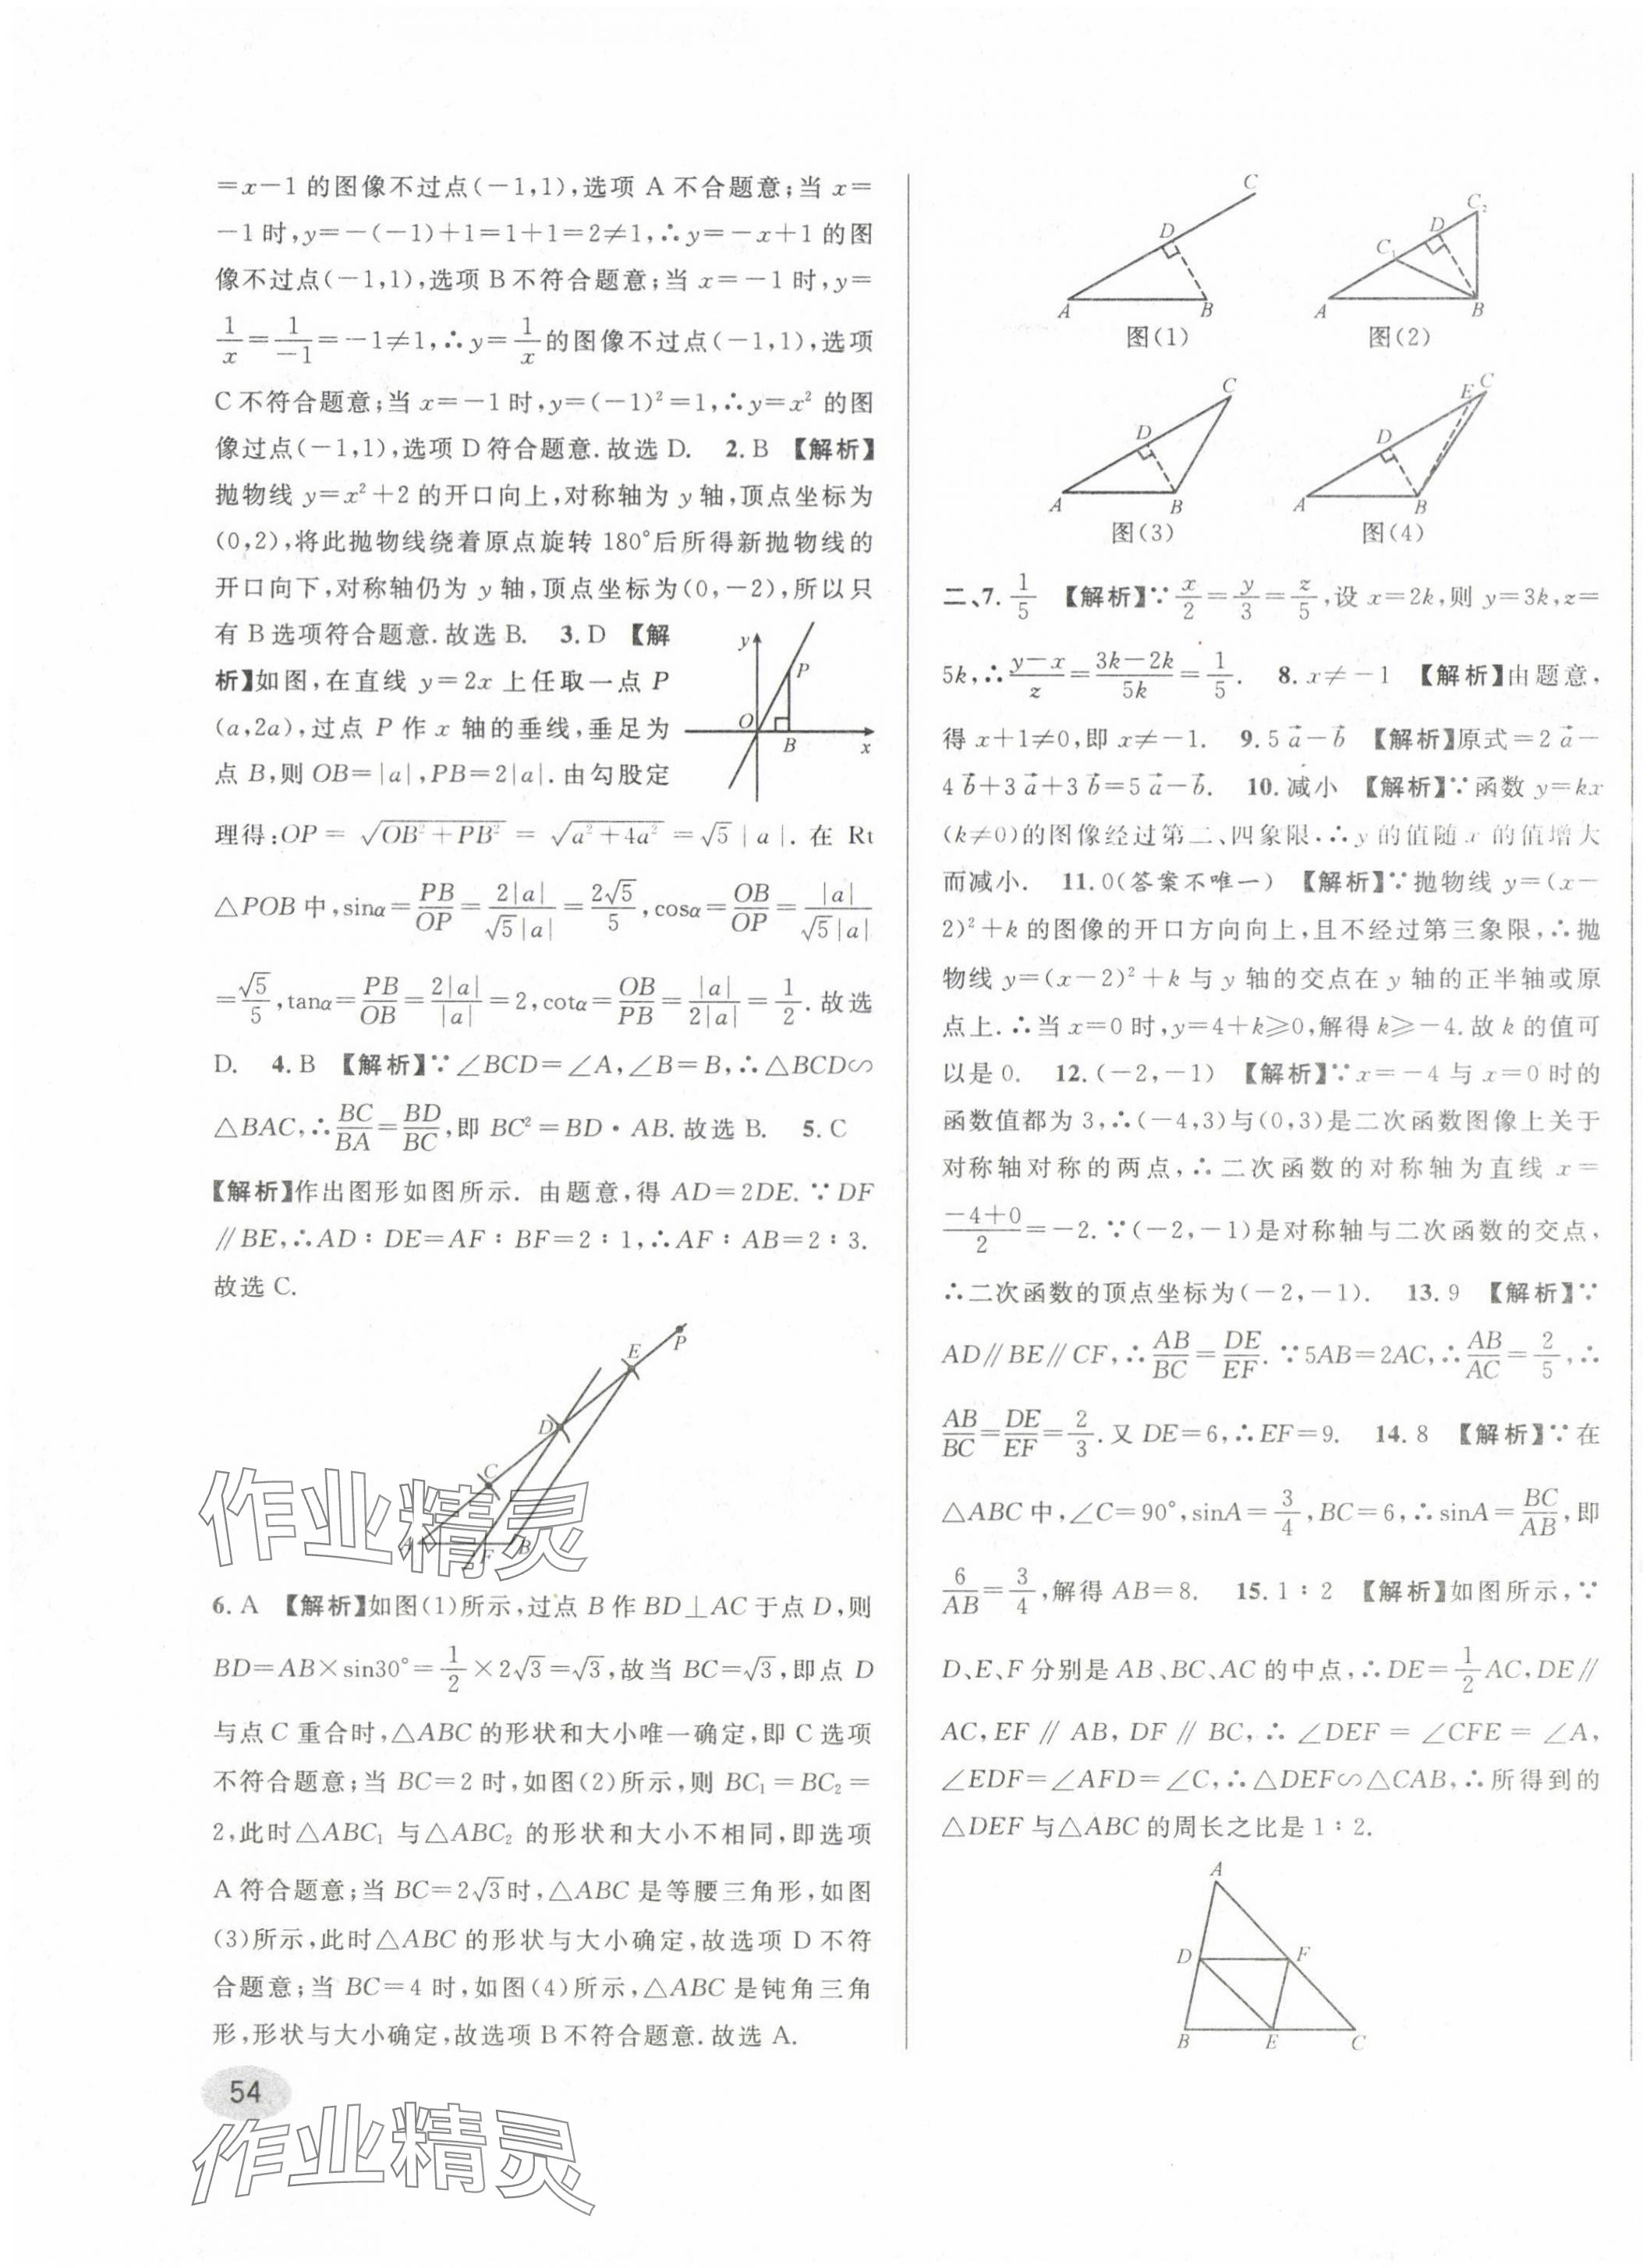 =x-1 的图像不过点(-1,1),选项 A 不合题意;当 x=
-1时,y=-(-1)+1=1+1=2≠1,∴y=-x+1 的图
像不过点(-1,1),选项 B 不符合题意;当 x=-1 时,y=
1/x=1/-1=-1≠1,∴y=1/x的图像不过点(-1,1),选项
C 不符合题意;当 x=-1 时,y=(-1)²=1,∴y=x² 的图
像过点(-1,1),选项 D 符合题意.故选 D. 2.B 【解析】
抛物线 y=x²+2 的开口向上,对称轴为 y 轴,顶点坐标为
(0,2),将此抛物线绕着原点旋转 180°后所得新抛物线的
开口向下,对称轴仍为 y 轴,顶点坐标为(0,-2),所以只
有 B 选项符合题意.故选 B. 3.D 【解
析】如图,在直线 y=2x 上任取一点 P
(a,2a),过点 P 作 x 轴的垂线,垂足为
点 B,则 OB=|a|,PB=2|a|.由勾股定
y
P
O
B
x
理得:OP=√(OB²+PB²)=√(a²+4a²)=√5|a|.在 Rt
△POB 中,sinα=PB/OP=2|a|/√5|a|=2√5/5,cosα=OB/OP=|a|/√5|a|
=√5/5,tanα=PB/OB=2|a|/|a|=2,cotα=OB/PB=|a|/2|a|=1/2.故选
D. 4.B 【解析】∵∠BCD=∠A,∠B=B,∴△BCD∽
△BAC,∴BC/BA=BD/BC,即 BC²=BD·AB.故选 B. 5.C
【解析】作出图形如图所示. 由题意,得 AD=2DE.∵DF
∥BE,∴AD:DE=AF:BF=2:1,∴AF:AB=2:3.
故选 C.
P
E
D
C
A
F
B
6.A 【解析】如图(1)所示,过点 B 作 BD⊥AC 于点 D,则
BD=AB×sin30°=1/2×2√3=√3,故当 BC=√3,即点 D
与点 C 重合时,△ABC 的形状和大小唯一确定,即 C 选项
不符合题意;当 BC=2 时,如图(2)所示,则 BC₁=BC₂=
2,此时△ABC₁ 与△ABC₂ 的形状和大小不相同,即选项
A 符合题意;当 BC=2√3时,△ABC 是等腰三角形,如图
(3)所示,此时△ABC 的形状与大小确定,故选项 D 不符
合题意;当 BC=4 时,如图(4)所示,△ABC 是钝角三角
形,形状与大小确定,故选项 B 不符合题意.故选 A.
54
作业精灵
作业精灵
C
D
A
B
图(1)
C₂
D
C₁
A
B
图(2)
C
D
A
B
图(3)
E
C
D
A
B
图(4)
二、7. 1/5 【解析】∵x/2=y/3=z/5,设 x=2k,则 y=3k,z=
5k,∴(y-x)/z=(3k-2k)/5k=1/5. 8.x≠-1 【解析】由题意,
得 x+1≠0,即 x≠-1. 9.5a⃗-b⃗ 【解析】原式=2a⃗-
4b⃗+3a⃗+3b⃗=5a⃗-b⃗. 10.减小 【解析】∵函数 y=kx
(k≠0)的图像经过第二、四象限.∴y 的值随 x 的值增大
而减小. 11.0(答案不唯一) 【解析】∵抛物线 y=(x-
2)²+k 的图像的开口方向向上,且不经过第三象限,∴抛
物线 y=(x-2)²+k 与 y 轴的交点在 y 轴的正半轴或原
点上.∴当 x=0 时,y=4+k≥0,解得 k≥-4.故 k 的值可
以是 0. 12.(-2,-1) 【解析】∵x=-4 与 x=0 时的
函数值都为 3,∴(-4,3)与(0,3)是二次函数图像上关于
对称轴对称的两点,∴二次函数的对称轴为直线 x=
(-4+0)/2=-2.∵(-2,-1)是对称轴与二次函数的交点,
∴二次函数的顶点坐标为(-2,-1). 13.9 【解析】∵
AD∥BE∥CF,∴AB/BC=DE/EF.∵5AB=2AC,∴AB/AC=2/5,∴
AB/BC=DE/EF=2/3.又 DE=6,∴EF=9. 14.8 【解析】∵在
△ABC 中,∠C=90°,sinA=3/4,BC=6,∴sinA=BC/AB,即
6/AB=3/4,解得 AB=8. 15.1:2 【解析】如图所示,∵
D、E、F 分别是 AB、BC、AC 的中点,∴DE=1/2AC,DE∥
AC,EF∥AB,DF∥BC,∴∠DEF=∠CFE=∠A,
∠EDF=∠AFD=∠C,∴△DEF∽△CAB,∴所得到的
△DEF 与△ABC 的周长之比是 1:2.
A
D
F
B
E
C